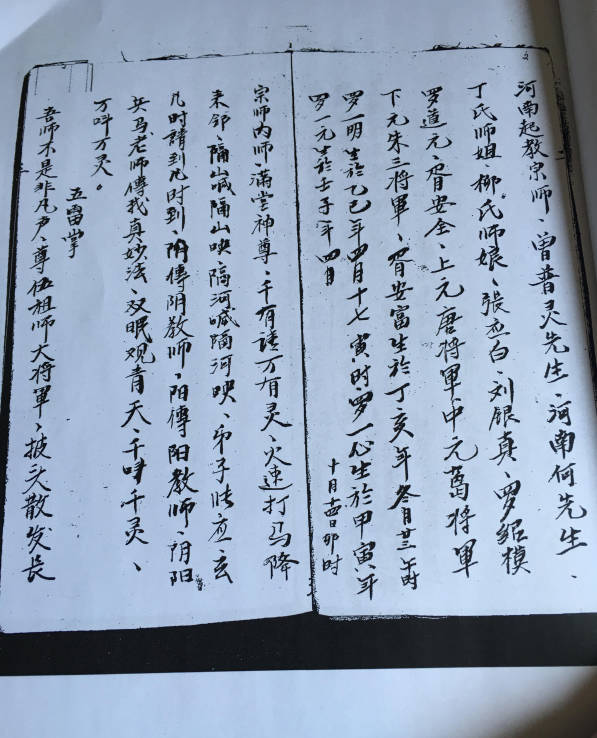 河南起教宗师、曾普灵先生、河南何先生、
丁氏师姐柳氏师娘、張杰白、刘银真、罗绍模
罗道元、胥安全、上元唐将軍中元葛将軍
下元朱三将軍、胥安富生於丁亥年冬月廿三午時
罗一明生於乙巳年四月十七寅时、罗一心生於甲寅、年十月十四日卯时
罗一元生於壬子年四月
宗师内师、满堂神尊、千有 万有灵、火速打马降
来邻、隔山喊隔山映、隔河喊隔河映、弟子 应玄
凡时請到凡时到、阴傳阴教师、阳傳阳教师、阴阳
兵马老师傳我真妙法、双眠观青天、千呌千灵、
万呌万灵。
五雷掌
吾师不是非凡户、尊伍祖师大将軍、披头散发長